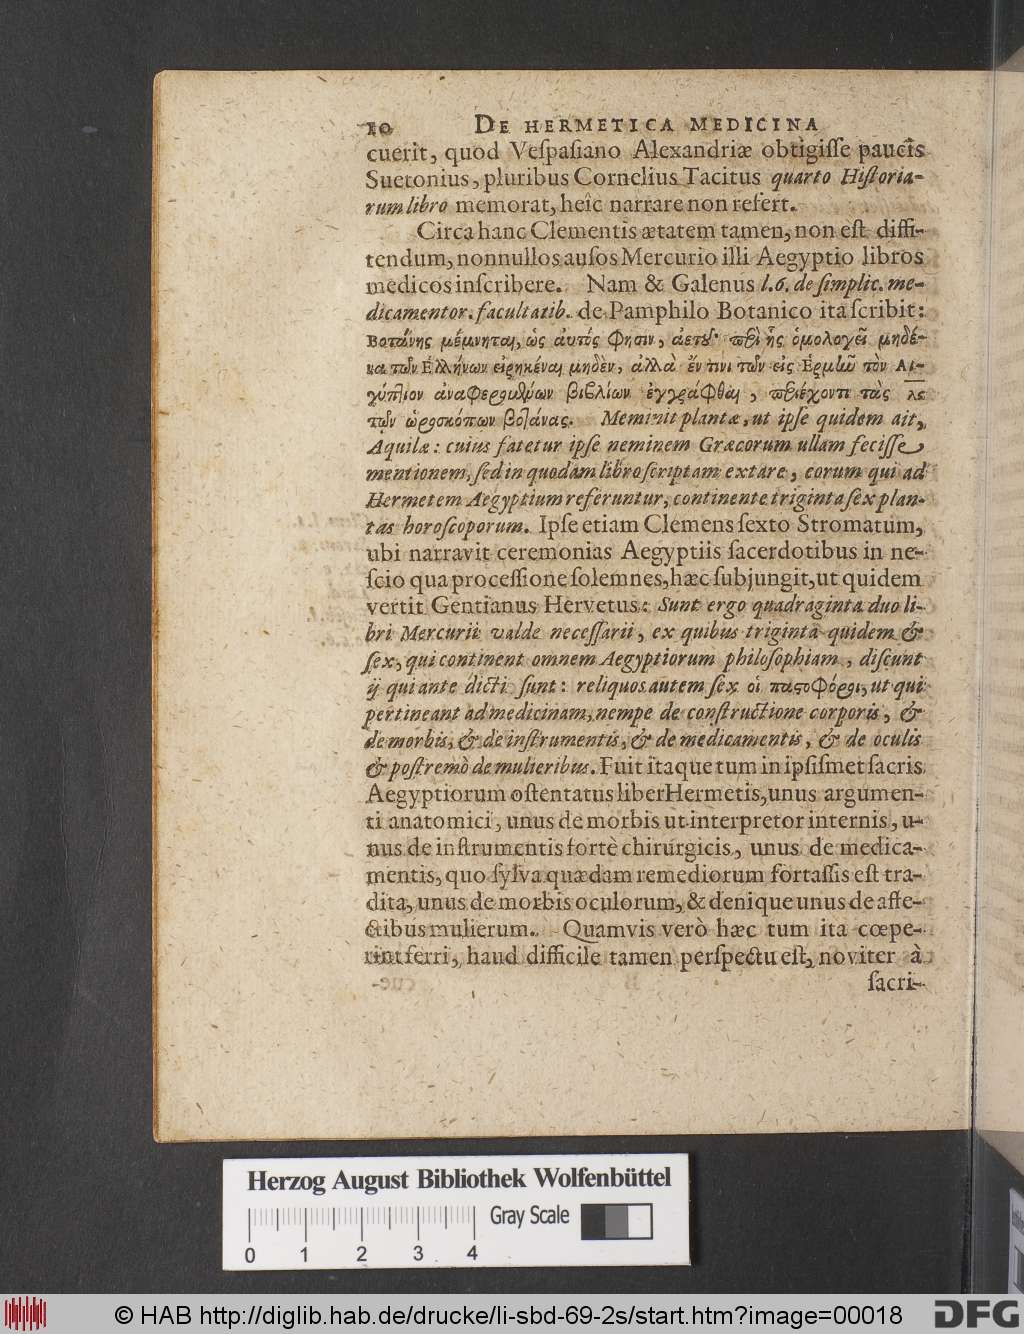 10 DE HERMETICA MEDICINA
cuerit, quod Veſpaſiano Alexandriæ obtigiſſe paucis
Suetonius, pluribus Cornelius Tacitus quarto Hiſtoria-
rum libro memorat, heîc narrare non refert.
Circa hanc Clementis ætatem tamen, non eſt diffi-
tendum, nonnullos auſos Mercurio illi Aegyptio libros
medicos inſcribere. Nam & Galenus l. 6. de ſimplic. me-
dicamentor. facultatib. de Pamphilo Botanico ita ſcribit:
Βοτάνης μέμνηται, ὡς αὐτός φησιν, ἀετοῦ· περὶ ἧς ὁμολογεῖ μηδέ-
να τῶν Ἑλλήνων εἰρηκέναι μηδὲν, ἀλλὰ ἔν τινι τῶν εἰς Ἑρμῆν τὸν Αἰ-
γύπτιον ἀναφερομένων βιβλίων ἐγγράφθαι, περιέχοντι τὰς λς
τῶν ὡροσκόπων βοτάνας. Meminit plantæ, ut ipſe quidem ait,
Aquilæ: cuius fatetur ipſe neminem Græcorum ullam feciſſe
mentionem, ſed in quodam libro ſcriptam extare, eorum qui ad
Hermetem Aegyptium referuntur, continente triginta ſex plan-
tas horoſcoporum. Ipſe etiam Clemens ſexto Stromatum,
ubi narravit ceremonias Aegyptiis ſacerdotibus in ne-
ſcio qua proceſſione ſolemnes, hæc ſubjungit, ut quidem
vertit Gentianus Hervetus: Sunt ergo quadraginta duo li-
bri Mercurii valde neceſſarii, ex quibus triginta quidem &
ſex, qui continent omnem Aegyptiorum philoſophiam, diſcunt
ij qui ante dicti ſunt: reliquos autem ſex οἱ παςοφόροι, ut qui
pertineant ad medicinam, nempe de conſtructione corporis, &
de morbis, & de inſtrumentis, & de medicamentis, & de oculis
& poſtremò de mulieribus. Fuit itaque tum in ipſiſmet ſacris
Aegyptiorum oſtentatus liber Hermetis, unus argumen-
ti anatomici, unus de morbis ut interpretor internis, u-
nus de inſtrumentis fortè chirurgicis, unus de medica-
mentis, quo ſylva quædam remediorum fortaſſis eſt tra-
dita, unus de morbis oculorum, & denique unus de affe-
ctibus mulierum. Quamvis verò hæc tum ita cœpe-
rint ferri, haud difficile tamen perſpectu eſt, noviter à
ſacri-
Herzog August Bibliothek Wolfenbüttel
Gray Scale
0 1 2 3 4
© HAB http://diglib.hab.de/drucke/li-sbd-69-2s/start.htm?image=00018 DFG